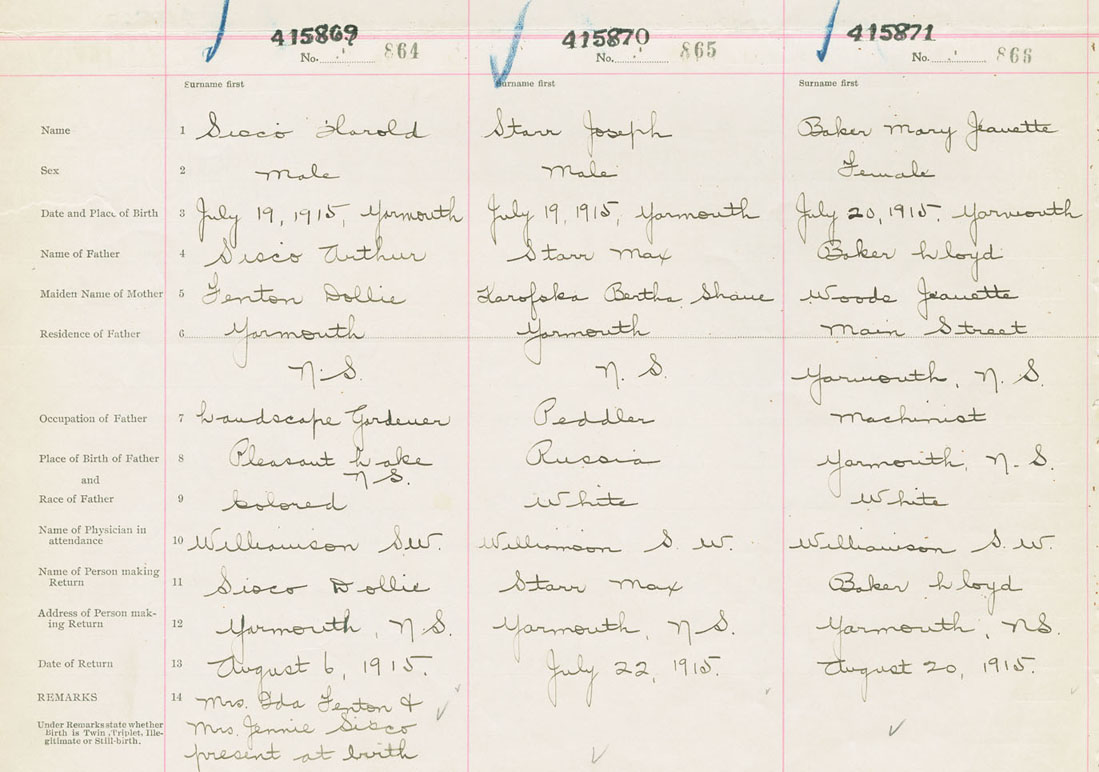 415869 415870 415871
No. 864 No. 865 No. 866
Surname first Surname first Surname first
Name 1 Sisco Harold Starr Joseph Baker Mary Jeanette
Sex 2 Male Male Female
Date and Place of Birth 3 July 19, 1915, Yarmouth July 19, 1915, Yarmouth July 20, 1915. Yarmouth
Name of Father 4 Sisco Arthur Starr Max Baker Lloyd
Maiden Name of Mother 5 Fenton Dollie Bertha Woods Jeanette
Residence of Father 6 Yarmouth Yarmouth Main Street
N.S. N. S. Yarmouth, N. S.
Occupation of Father 7 Landscape Gardener Peddler Machinist
Place of Birth of Father 8 Pleasant Lake Russia Yarmouth, N. S.
and N.S.
Race of Father 9 Colored White White
Name of Physician in
attendance 10 Williamson S.W. Williamson S. W. Williamson S. W.
Name of Person making
Return 11 Sisco Dollie Starr Max Baker Lloyd
Address of Person mak-
ing Return 12 Yarmouth, N.S. Yarmouth, N.S. Yarmouth, N.S.
Date of Return 13 August 6, 1915. July 22, 1915. August 20, 1915.
REMARKS 14 Mrs. Ida Fenton &
Under Remarks state whether Mrs. Jennie Sisco
Birth is Twin, Triplet, Ille-
gitimate or Still-birth. present at birth